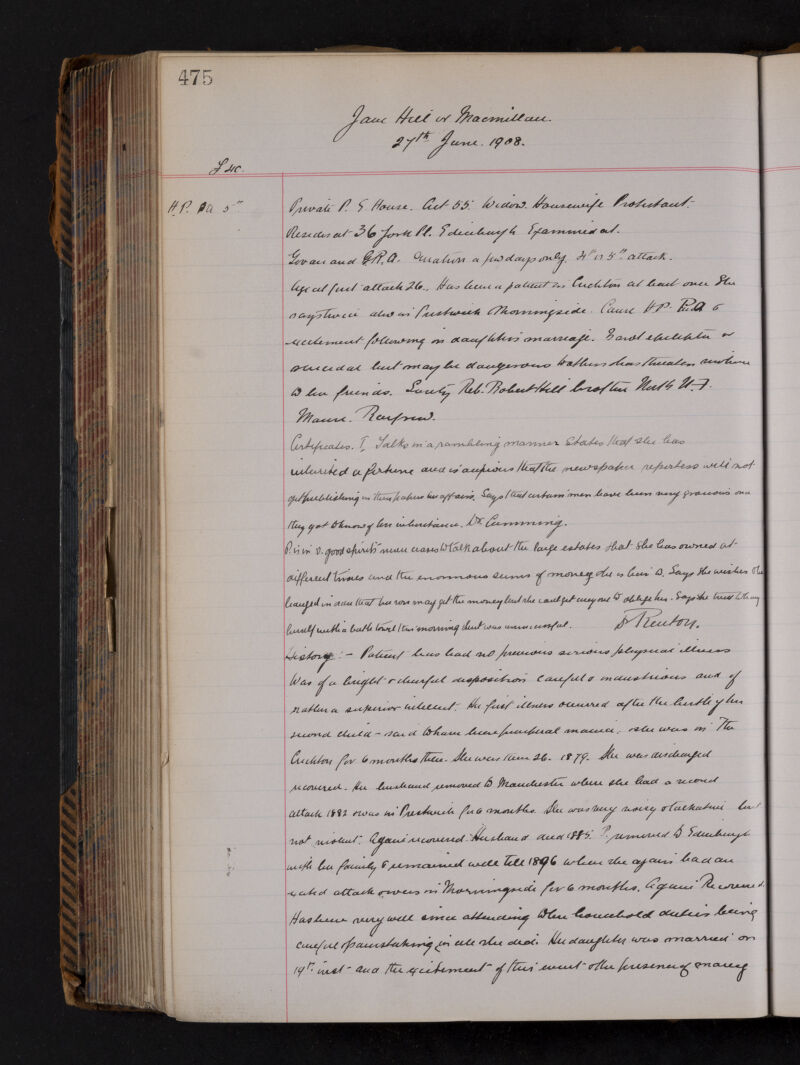 475
Jane Hill or Macmillan.
27th June. 1908.
H.P. 5"
Private P. House. Aet 55. Widow. Housewife Protestant.
Resides at 36 York Pl. Edinburgh Examined at.
Govan and Duration a few days only. 4th or 5th attack.
Age at first attack 26. Has been a patient in Crichton at least once She
says twice also in Prestwich Morningside. Cause H.P. &
excitement following on daughter's marriage. Is not epileptic or
suicidal but may be dangerous to others does threaten violence
to her friends. Rev. Robert Hill brother North U.F.
Manse. Renfrew.
Certificates. I, Talks in a rambling manner States that she has
inherited a fortune and is anxious that the newspaper reporters will not
get publishing in the papers her affairs. Says that certain men have been very gracious once
they got to know of her inheritance. Dr. Cumming.
P. is in v. good spirits never ceases to talk about the large estates that she has owned at
different times and the enormous sums of money she is heir to. Says she wishes to be
hanged in order that her son may get the money but she can't get anyone to oblige her. Says she tried to hang
herself with a bath towel this morning but was unsuccessful. Dr Renton.
History:- Patient has had no previous serious physical illness
Was of a bright & cheerful disposition careful & industrious and of
rather a superior intellect. Her first illness occurred after the birth of her
second child - said to have been puerperal mania; she was in The
Crichton for 6 months then. She was then 26. 1879. She was discharged
recovered. Her husband removed to Manchester where she had a second
attack 1882 & was in Prestwich for 6 months. She was very noisy & talkative but
not violent. Again recovered. Husband died 1885. P. removed to Edinburgh
with her family & remained well till 1896 when she again had an
attack & was in Morningside for 6 months. Again Recovered.
Has been very well since attending to her household duties being
careful & painstaking in all she did. Her daughter was married on
14th inst - and the excitement of this event & the presence of many